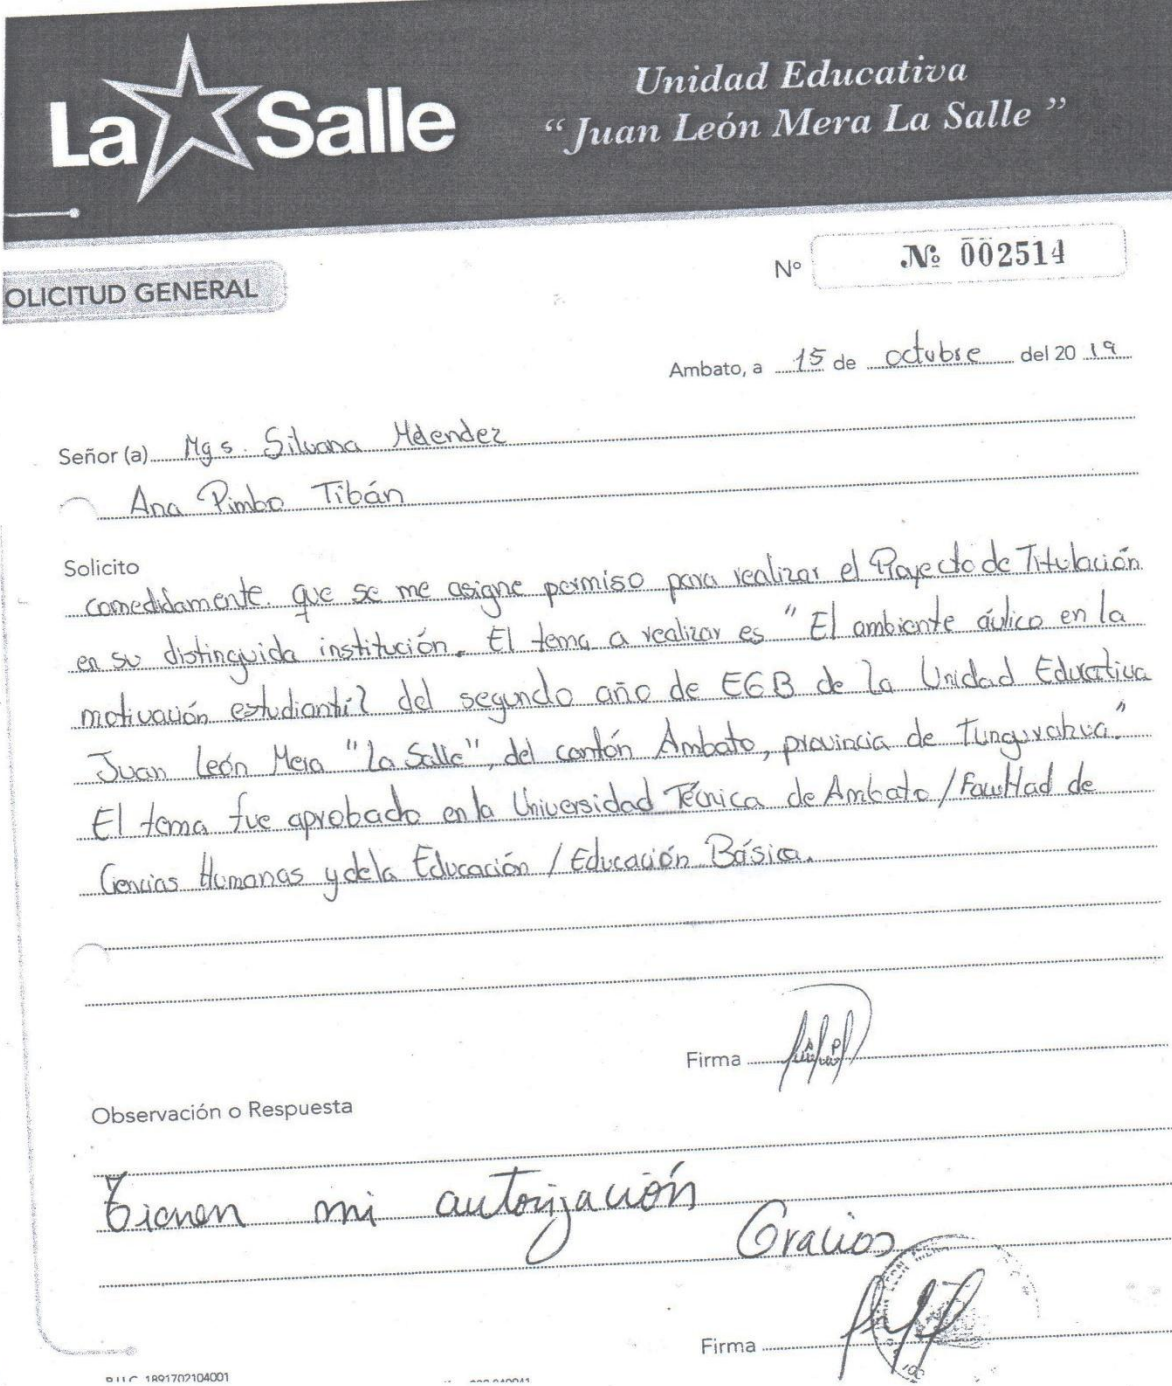 La Salle
Unidad Educativa
“ Juan León Mera La Salle ”
Nº № 002514
OLICITUD GENERAL
Ambato, a 15 de octubre del 20 19
Señor (a) Mgs. Silvana Méendez
Ana Pimbo Tibán
Solicito
comedidamente. que se me asigne permiso para realizar el Proyecto de Titulación
en su distinguida institución. El tema a realizar es "El ambiente áulico en la
motivación estudiantil del segundo año de EGB de la Unidad Educativa
Juan León Mera "La Salle", del cantón Ambato, provincia de Tungurahua."
El tema fue aprobado en la Universidad Técnica de Ambato / Facultad de
Ciencias Humanas y de la Educación / Educación Básica.
Firma
Observación o Respuesta
Tienen mi autorización
Gracias
Firma
R.U.C. 1891702104001